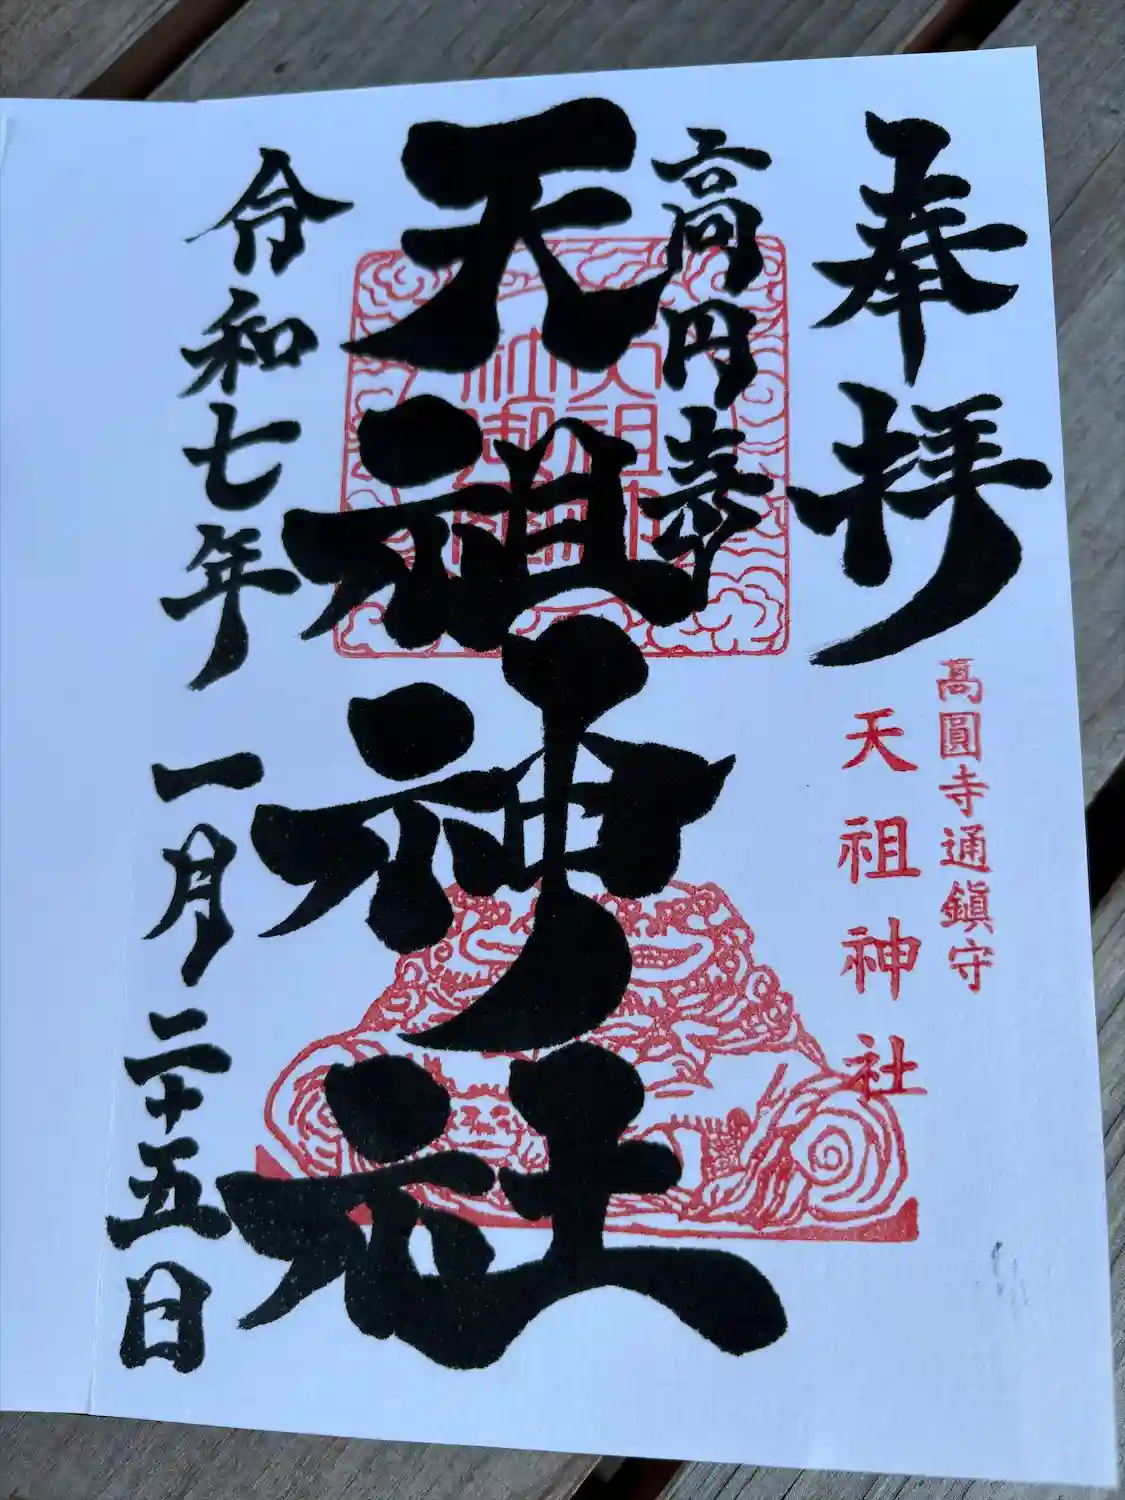 奉拝
高圓寺通鎮守
天祖神社
高円寺
天祖神社
令和七年一月二十五日